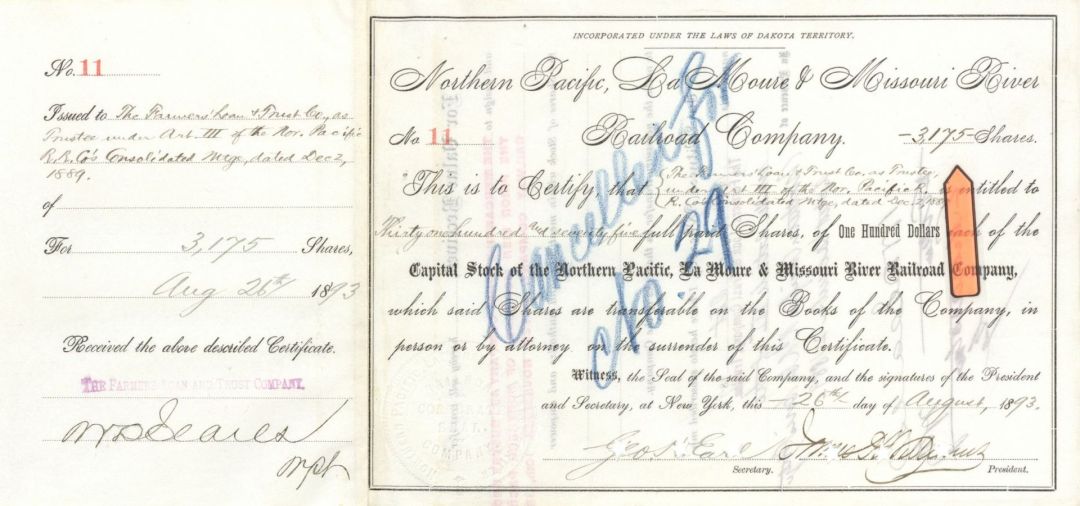 No. 11
Issued to The Farmers' Loan & Trust Co., as
Trustee under Art. III of the Nor. Pacific
R.R. Co's Consolidated Mtge, dated Dec 2,
1889.
of
For 3,175 Shares,
Aug 26th 1893
Received the above described Certificate.
THE FARMERS LOAN AND TRUST COMPANY,
INCORPORATED UNDER THE LAWS OF DAKOTA TERRITORY.
Northern Pacific, La Moure & Missouri River
No 11 Railroad Company. —3,175— Shares.
This is to Certify, that The Farmers' Loan & Trust Co. as Trustee,
under Art III of the Nor. Pacific R.
R. Co's Consolidated Mtge, dated Dec. 2, 1889 is entitled to
Thirty one hundred and seventy five full paid Shares, of One Hundred Dollars each of the
Capital Stock of the Northern Pacific, La Moure & Missouri River Railroad Company,
which said Shares are transferable on the Books of the Company, in
person or by attorney on the surrender of this Certificate.
Witness, the Seal of the said Company, and the signatures of the President
and Secretary, at New York, this — 26th day of August, 1893.
Geo. H. Earl
Secretary. President.
Cancelled
No. 29